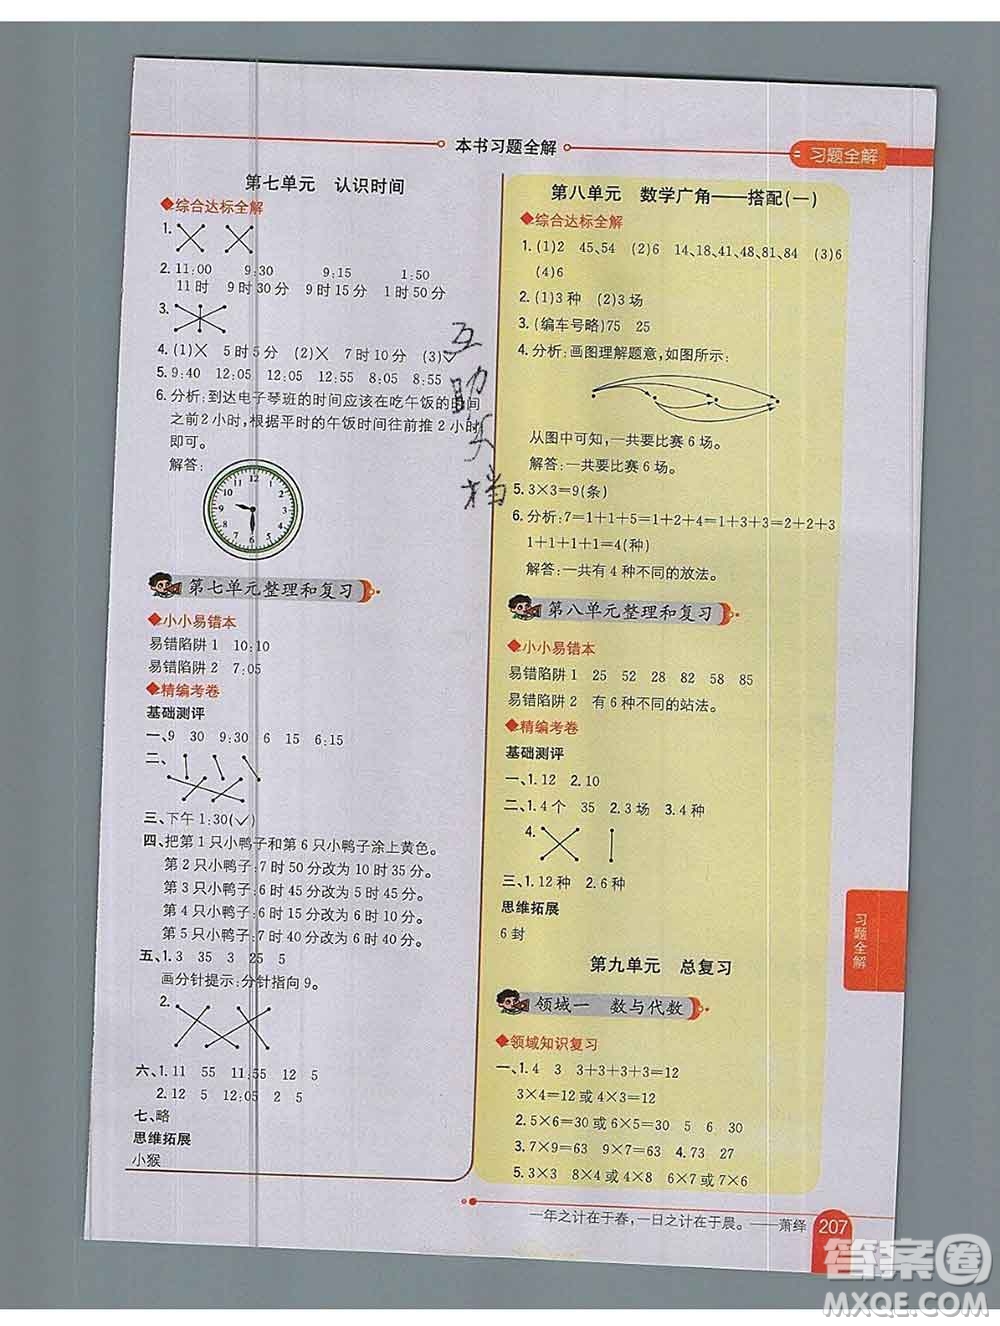 本书习题全解
习题全解
第七单元 认识时间
◆综合达标全解
1.
2. 11:00 9:30 9:15 1:50
11时 9时30分 9时15分 1时50分
3.
4. (1)× 5时5分 (2)× 7时10分 (3)✓
5. 9:40 12:05 12:10 12:55 8:05 8:55
6. 分析:到达电子琴班的时间应该在吃午饭的时间
之前2小时,根据平时的午饭时间往前推2小时
即可。
解答:
12
1
2
3
4
5
6
7
8
9
10
11
第七单元整理和复习
◆小小易错本
易错陷阱1 10:10
易错陷阱2 7:05
◆精编考卷
基础测评
一、9 30 9:30 6 15 6:15
二、
三、下午1:30(✓)
四、把第1只小鸭子和第6只小鸭子涂上黄色。
第2只小鸭子:7时50分改为10时10分。
第3只小鸭子:6时45分改为5时45分。
第4只小鸭子:6时15分改为7时15分。
第5只小鸭子:7时40分改为8时40分。
五、1. 3 35 3 25 5
画分针提示:分针指向9。
2.
六、1. 11 55 11:55 12 5
2. 12 5 12:05 2 5
七、略
思维拓展
小猴
互助文档
第八单元 数学广角——搭配(一)
◆综合达标全解
1. (1)2 45、54 (2)6 14、18、41、48、81、84 (3)6
(4)6
2. (1)3种 (2)3场
3. (编车号略)75 25
4. 分析:画图理解题意,如图所示:
从图中可知,一共要比赛6场。
解答:一共要比赛6场。
5. 3×3=9(条)
6. 分析:7=1+1+5=1+2+4=1+3+3=2+2+3
1+1+1+1=4(种)
解答:一共有4种不同的放法。
第八单元整理和复习
◆小小易错本
易错陷阱1 25 52 28 82 58 85
易错陷阱2 有6种不同的站法。
◆精编考卷
基础测评
一、1. 12 2. 10
二、1. 4个 35 2. 3场 3. 4种
4.
三、1. 12种 2. 6种
思维拓展
6封
第九单元 总复习
领域一 数与代数
◆领域知识复习
一、1. 4 3 3+3+3+3=12
3×4=12 4×3=12
2. 5×6=30或6×5=30 5 6 30
3. 7×9=63 9×7=63 4. 73 27
5. 3×3 8×4或4×8 6×7或7×6
习题全解
一年之计在于春,一日之计在于晨。——萧绎
207
答案圈
MXQE.COM